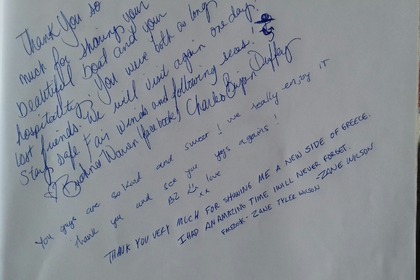 Thank You so
much for sharing your
beautiful boat and your
hospitality. You were both as long
lost friends. We will visit again one day!
Stay safe Fair Winds and following seas!
Charles Bryan Duffey
You guys are so kind and sweet! we really enjoy it
thank you and see you guys agains!
love
THANK YOU VERY MUCH FOR SHOWING ME A NEW SIDE OF GREECE.
I HAD AN AMAZING TIME I WILL NEVER FORGET.
-ZANE WILSON
FACEBOOK- ZANE TYLER WILSON